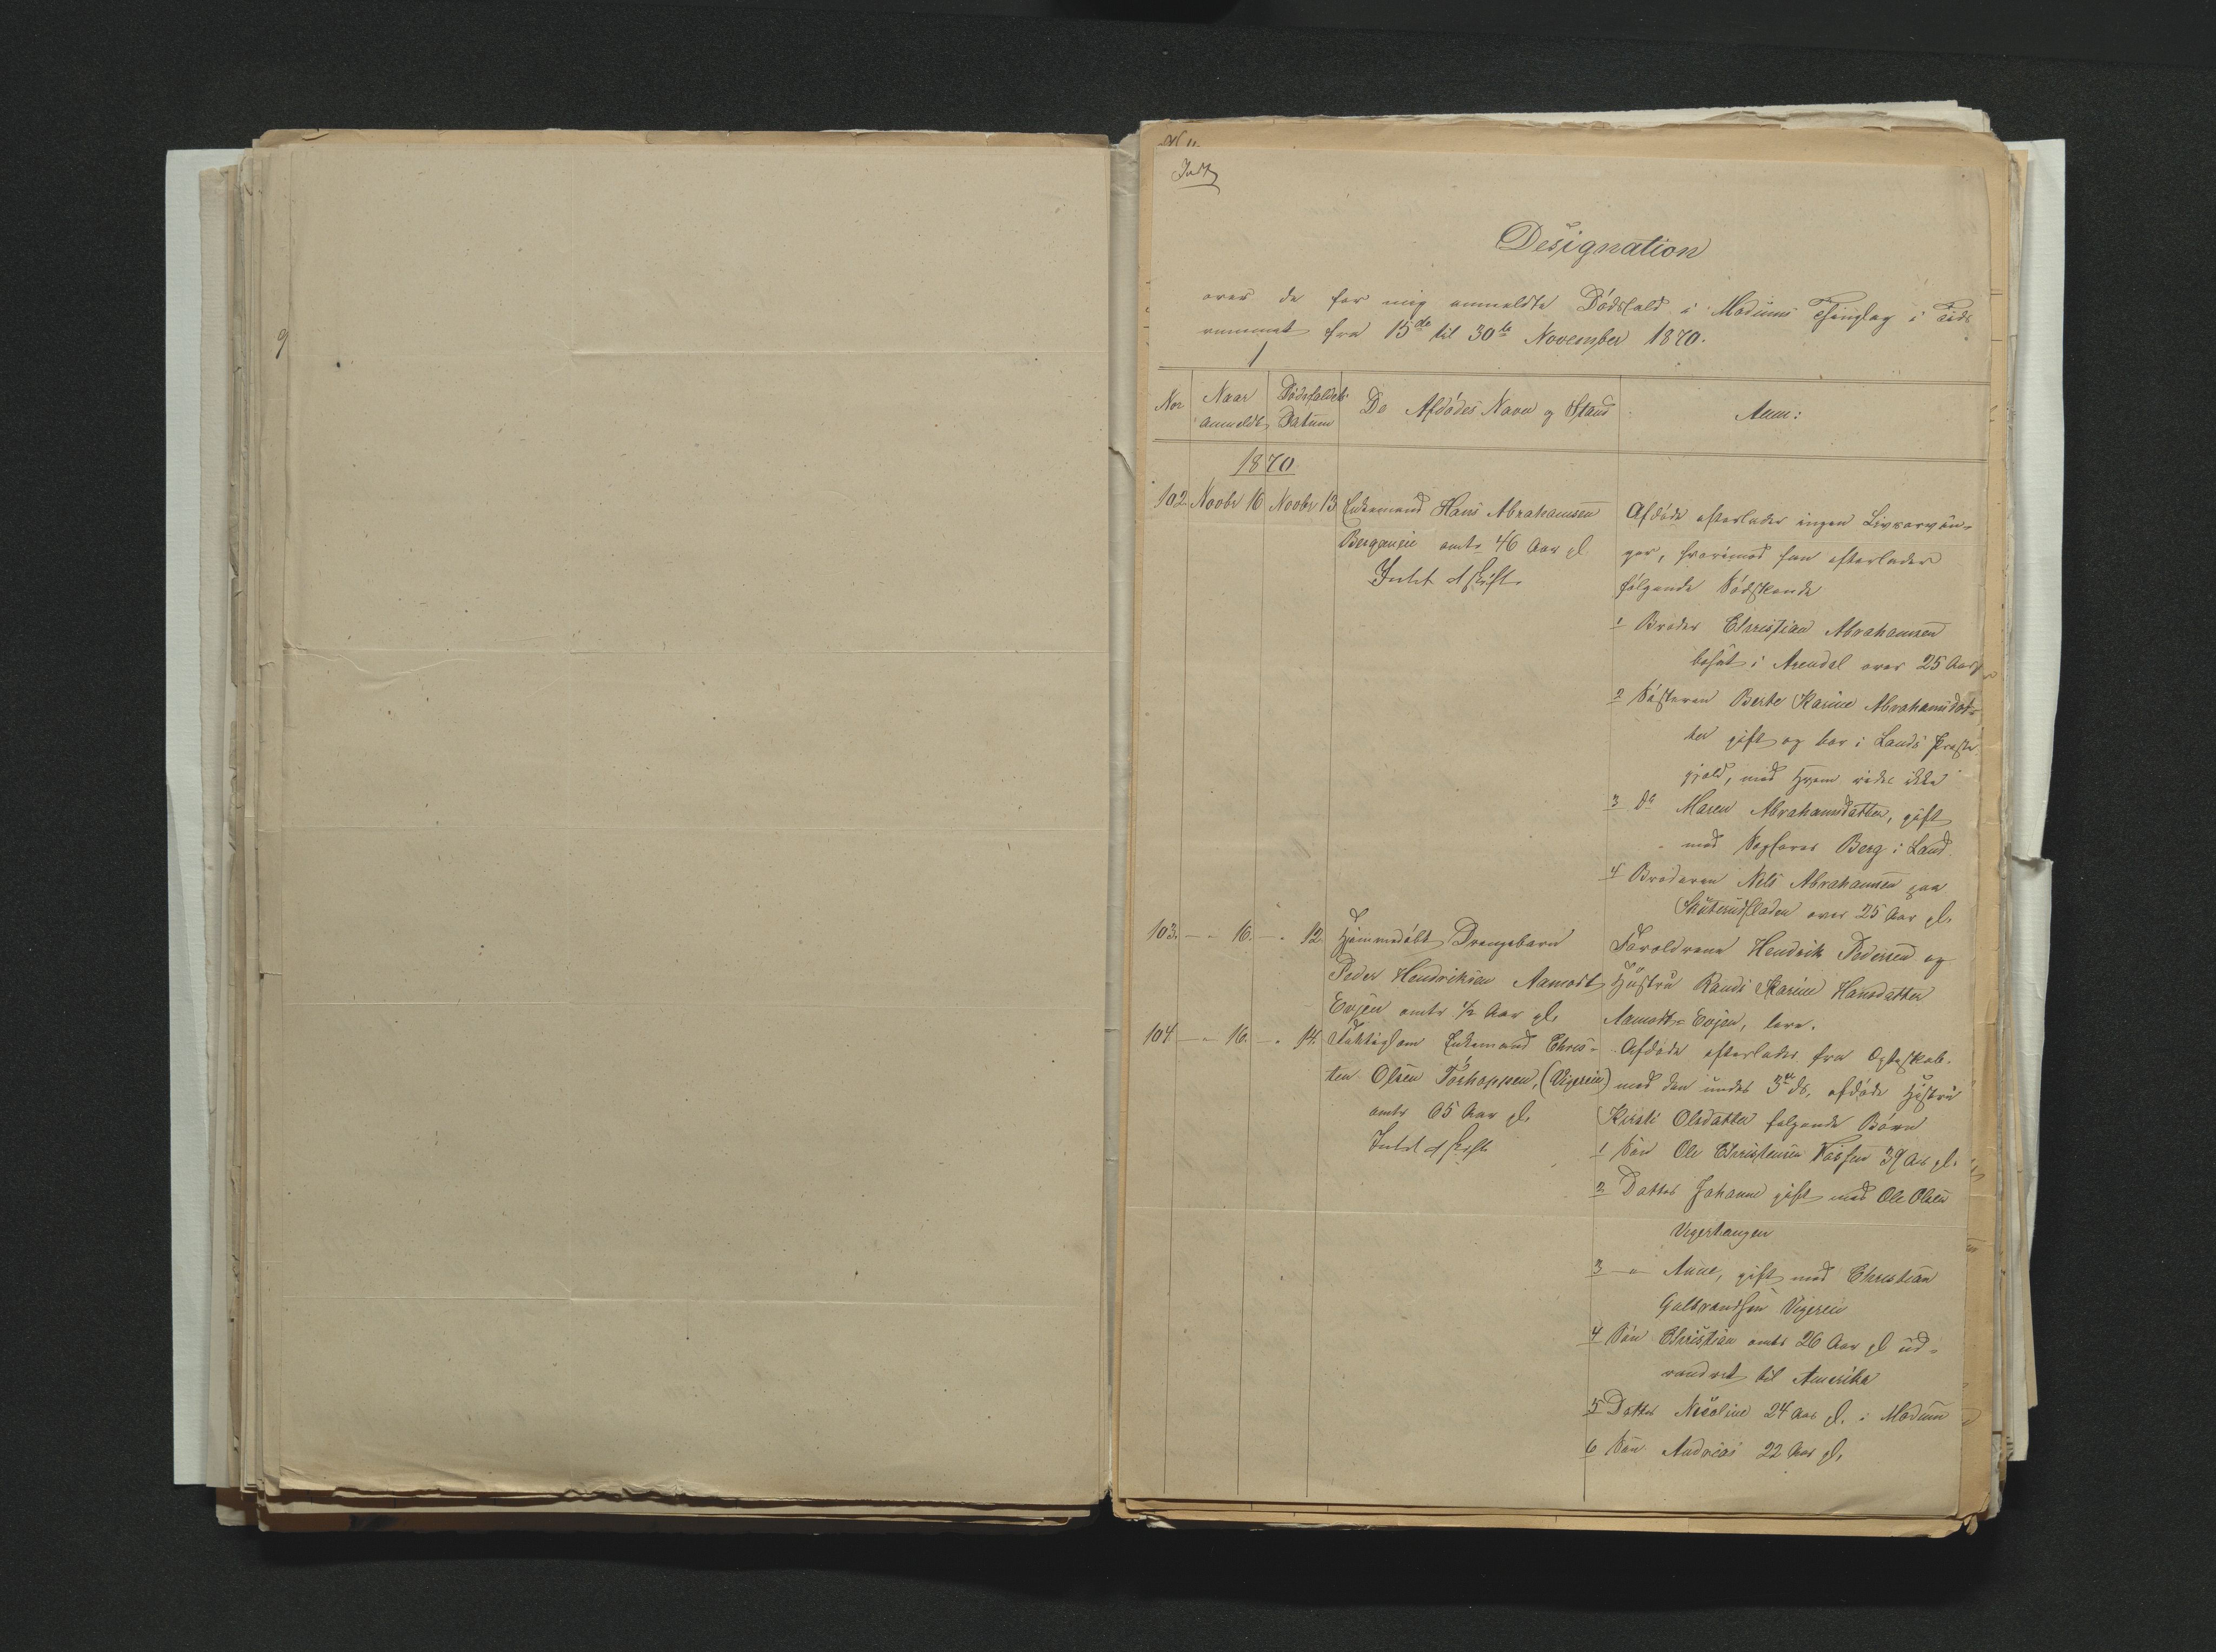 Designation
over de for mig anmeldte Dödsfald i Modums Thinglag i Tids
rummet fra 15de til 30te November 1870.
No
Naar
anmeldt
Dödsfaldets
Datum
De Afdödes Navn og Stand
Anm:
1870
102 Novbr 16 Novbr 13 Enkemand Hans Abrahamsen
Bergansie omtr 46 Aar gl
Afdöde efterlader ingen Livsarvin-
ger, hvorimod han efterlader
fölgende Södskende
1 Broder Christian Abrahamsen
bosat i Arendal over 25 Aar
2 Sösteren Berte Karine Abrahamsdat-
ter gift og bor i Lands Præste
gjeld, med Hvem vides ikke
3 do Maren Abrahamsdatter, gift
med Berg i Land.
4 Broderen Nils Abrahamsen paa
Skuterudfladen over 25 Aar gl.
103. - " 16. - " 12. Hjemmedöbt Drengebarn
Peder Hendriksen Aamodt
Eвjen omtr 1/2 Aar gl.
Forældrene Hendrik Pedersen og
Hustru Randi Karine Hansdatter
Aamodt-Evjen, leve.
104. - " 16. - " 14. Enkemand Chris-
ten Olsen (Vigersie)
omtr 65 Aar gl.
Afdöde efterlader fra Ægteskab.
med den under 3de ds. afdöde Hustru
Kirsti Olsdatter fölgende Börn
1 Sön Ole Christensen 39 Aar gl.
2 Datter Johanne gift med Ole Olsen
Vigerhaugen
3 - " - Anne, gift med Christian
Gulbrandsen Vigersie
4 Sön Christian omtr 26 Aar gl ud-
vandret til Amerika
5 Datter Nicoline 24 Aar gl. i Modum
6 Sön Andreas 22 Aar gl.